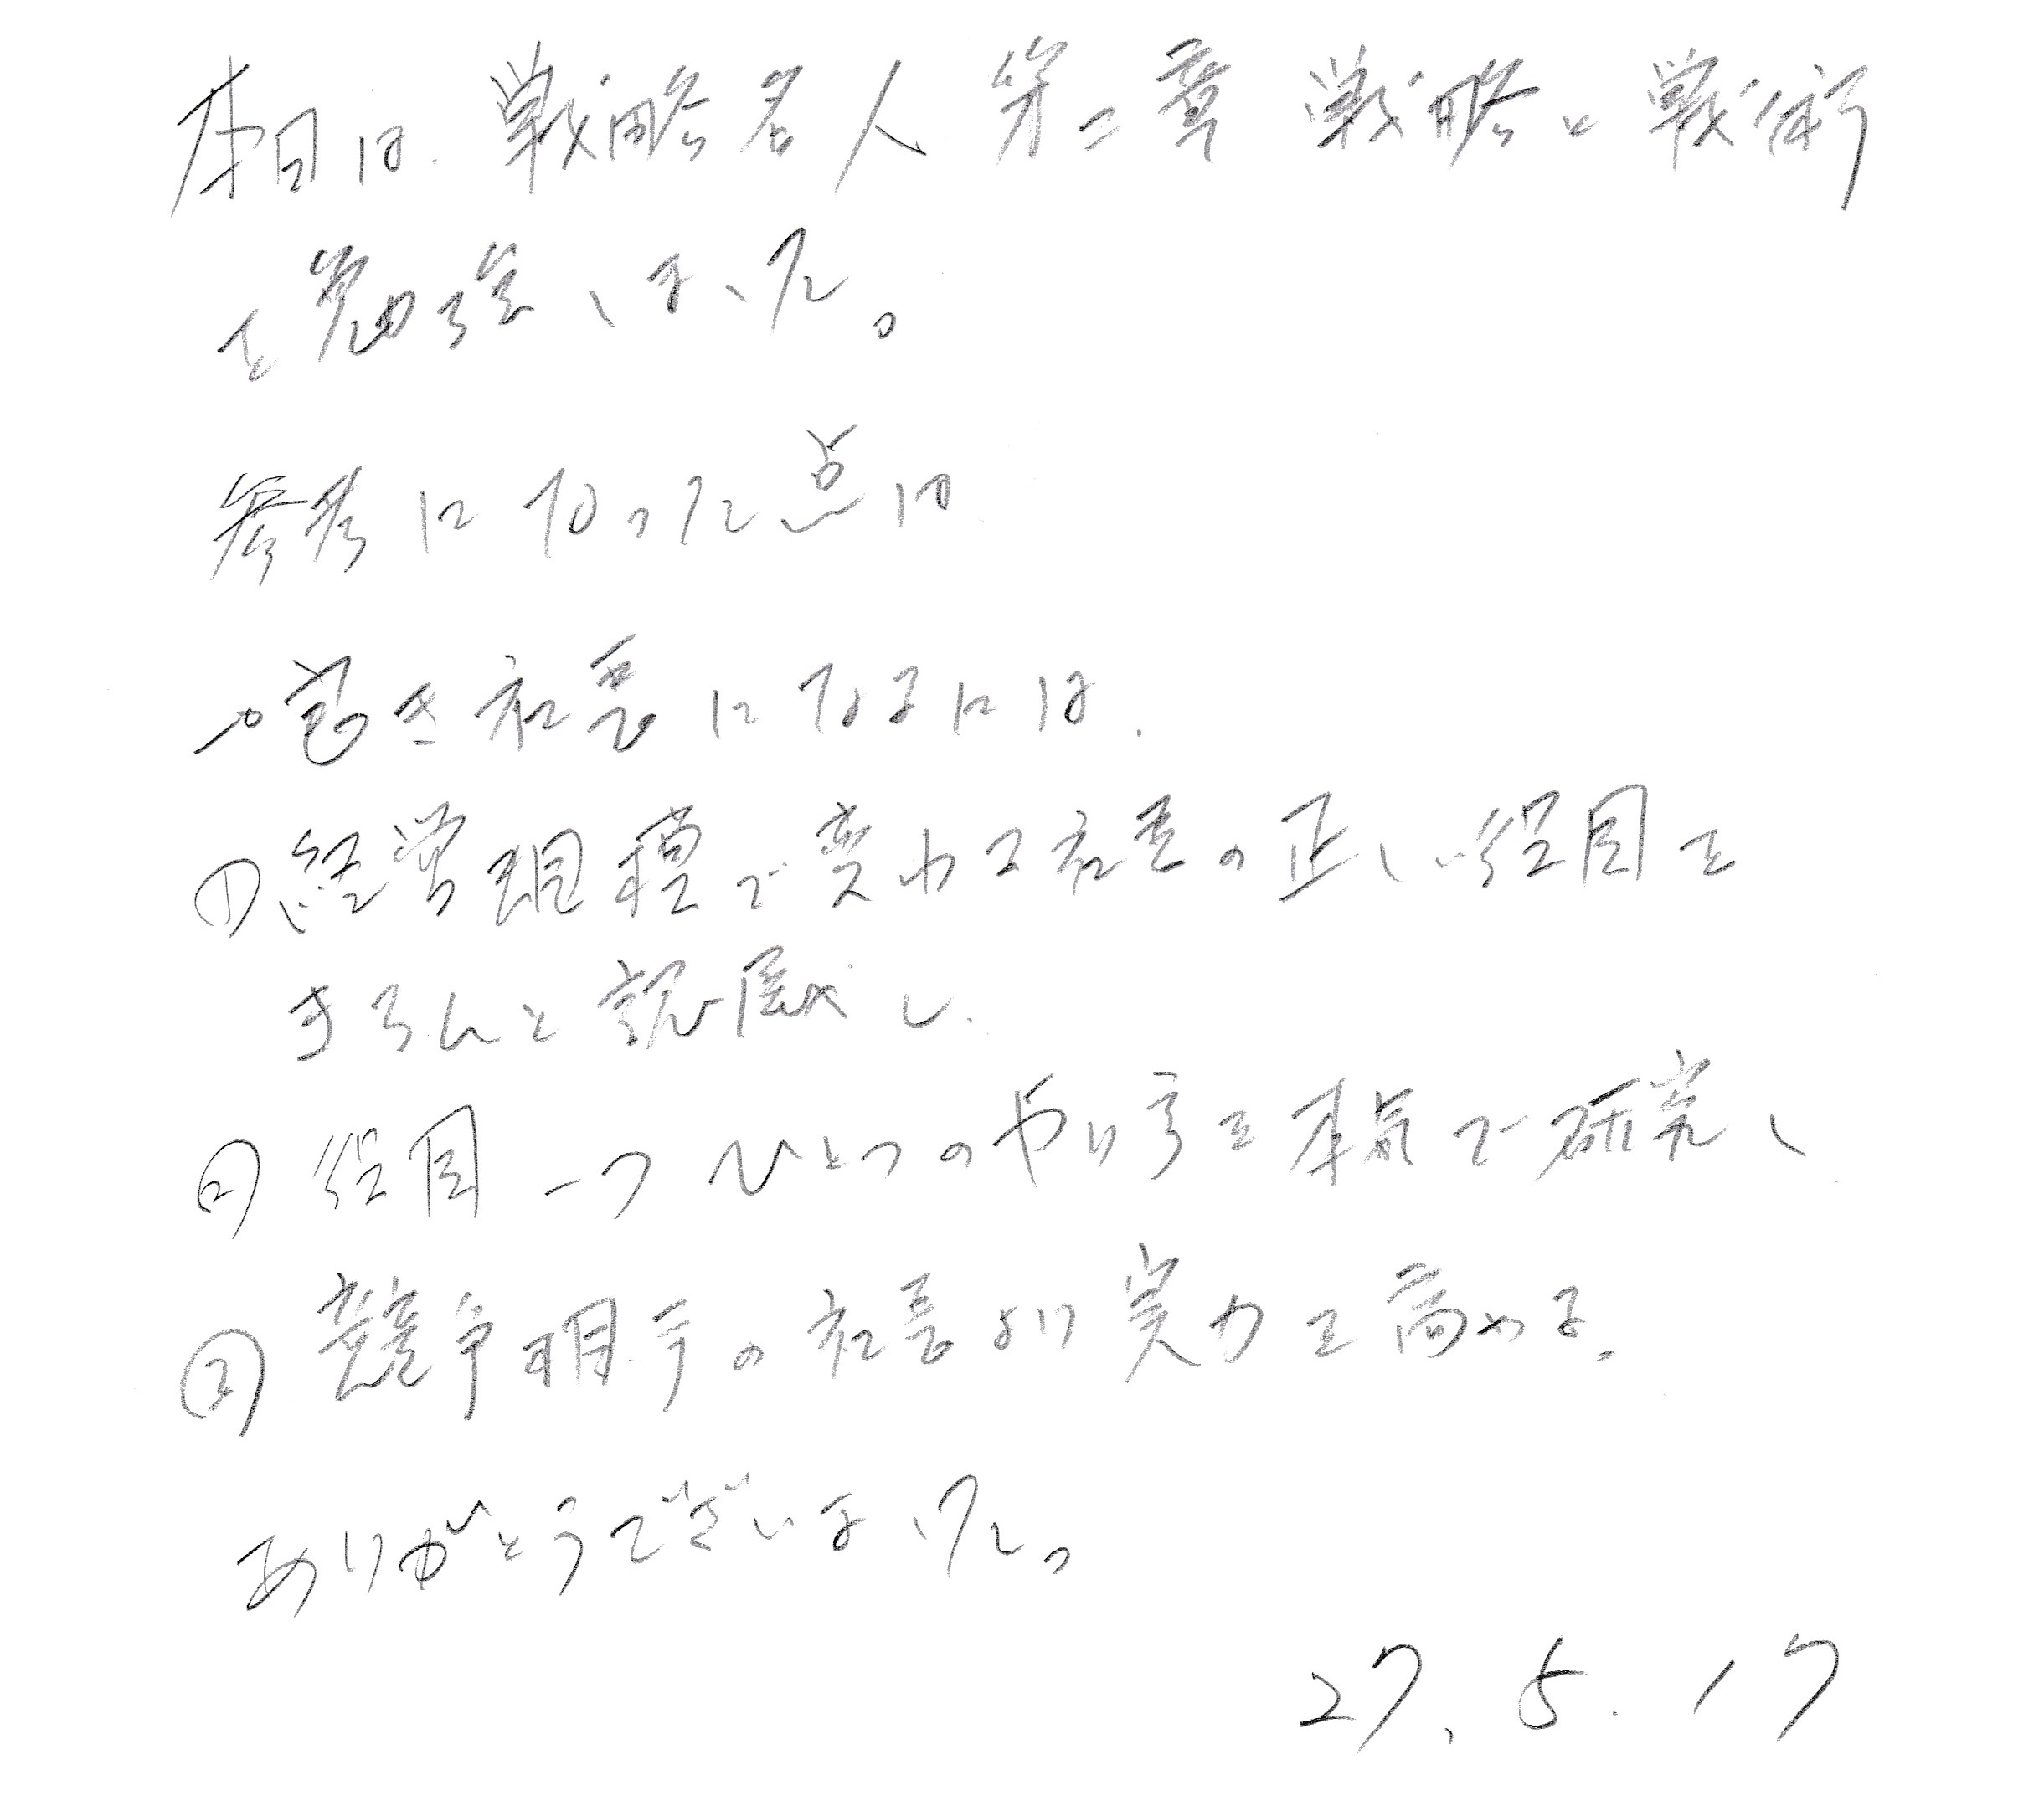 本日は、戦略名人 第二章 戦略と戦術
を勉強しました。
参考になった点は
良き社長になるには、
①経営規模で変わる社長の正しい役目を
きちんと認識し、
②役目一つひとつのやり方を本気で研究し
③競争相手の社長より実力を高める。
ありがとうございました。
27.5.17